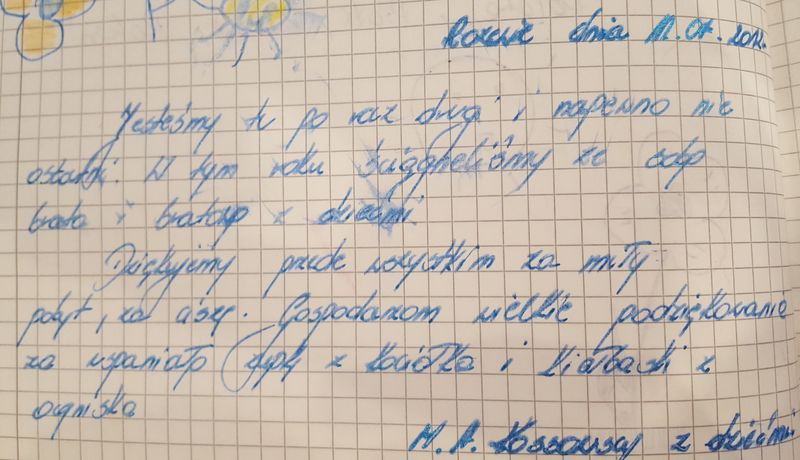 dnia 11.07.2012r.
Jesteśmy tu po raz drugi i napewno nie
ostatni. W tym roku ściągneliśmy ze sobą
brata i bratową z dziećmi.
Dziękujemy przede wszystkim za miły
pobyt, za ciszę. Gospodarzom wielkie podziękowania
za wspaniałą zupę z kociołka i kiełbaski z
ogniska
M. A. Kossowscy z dziećmi